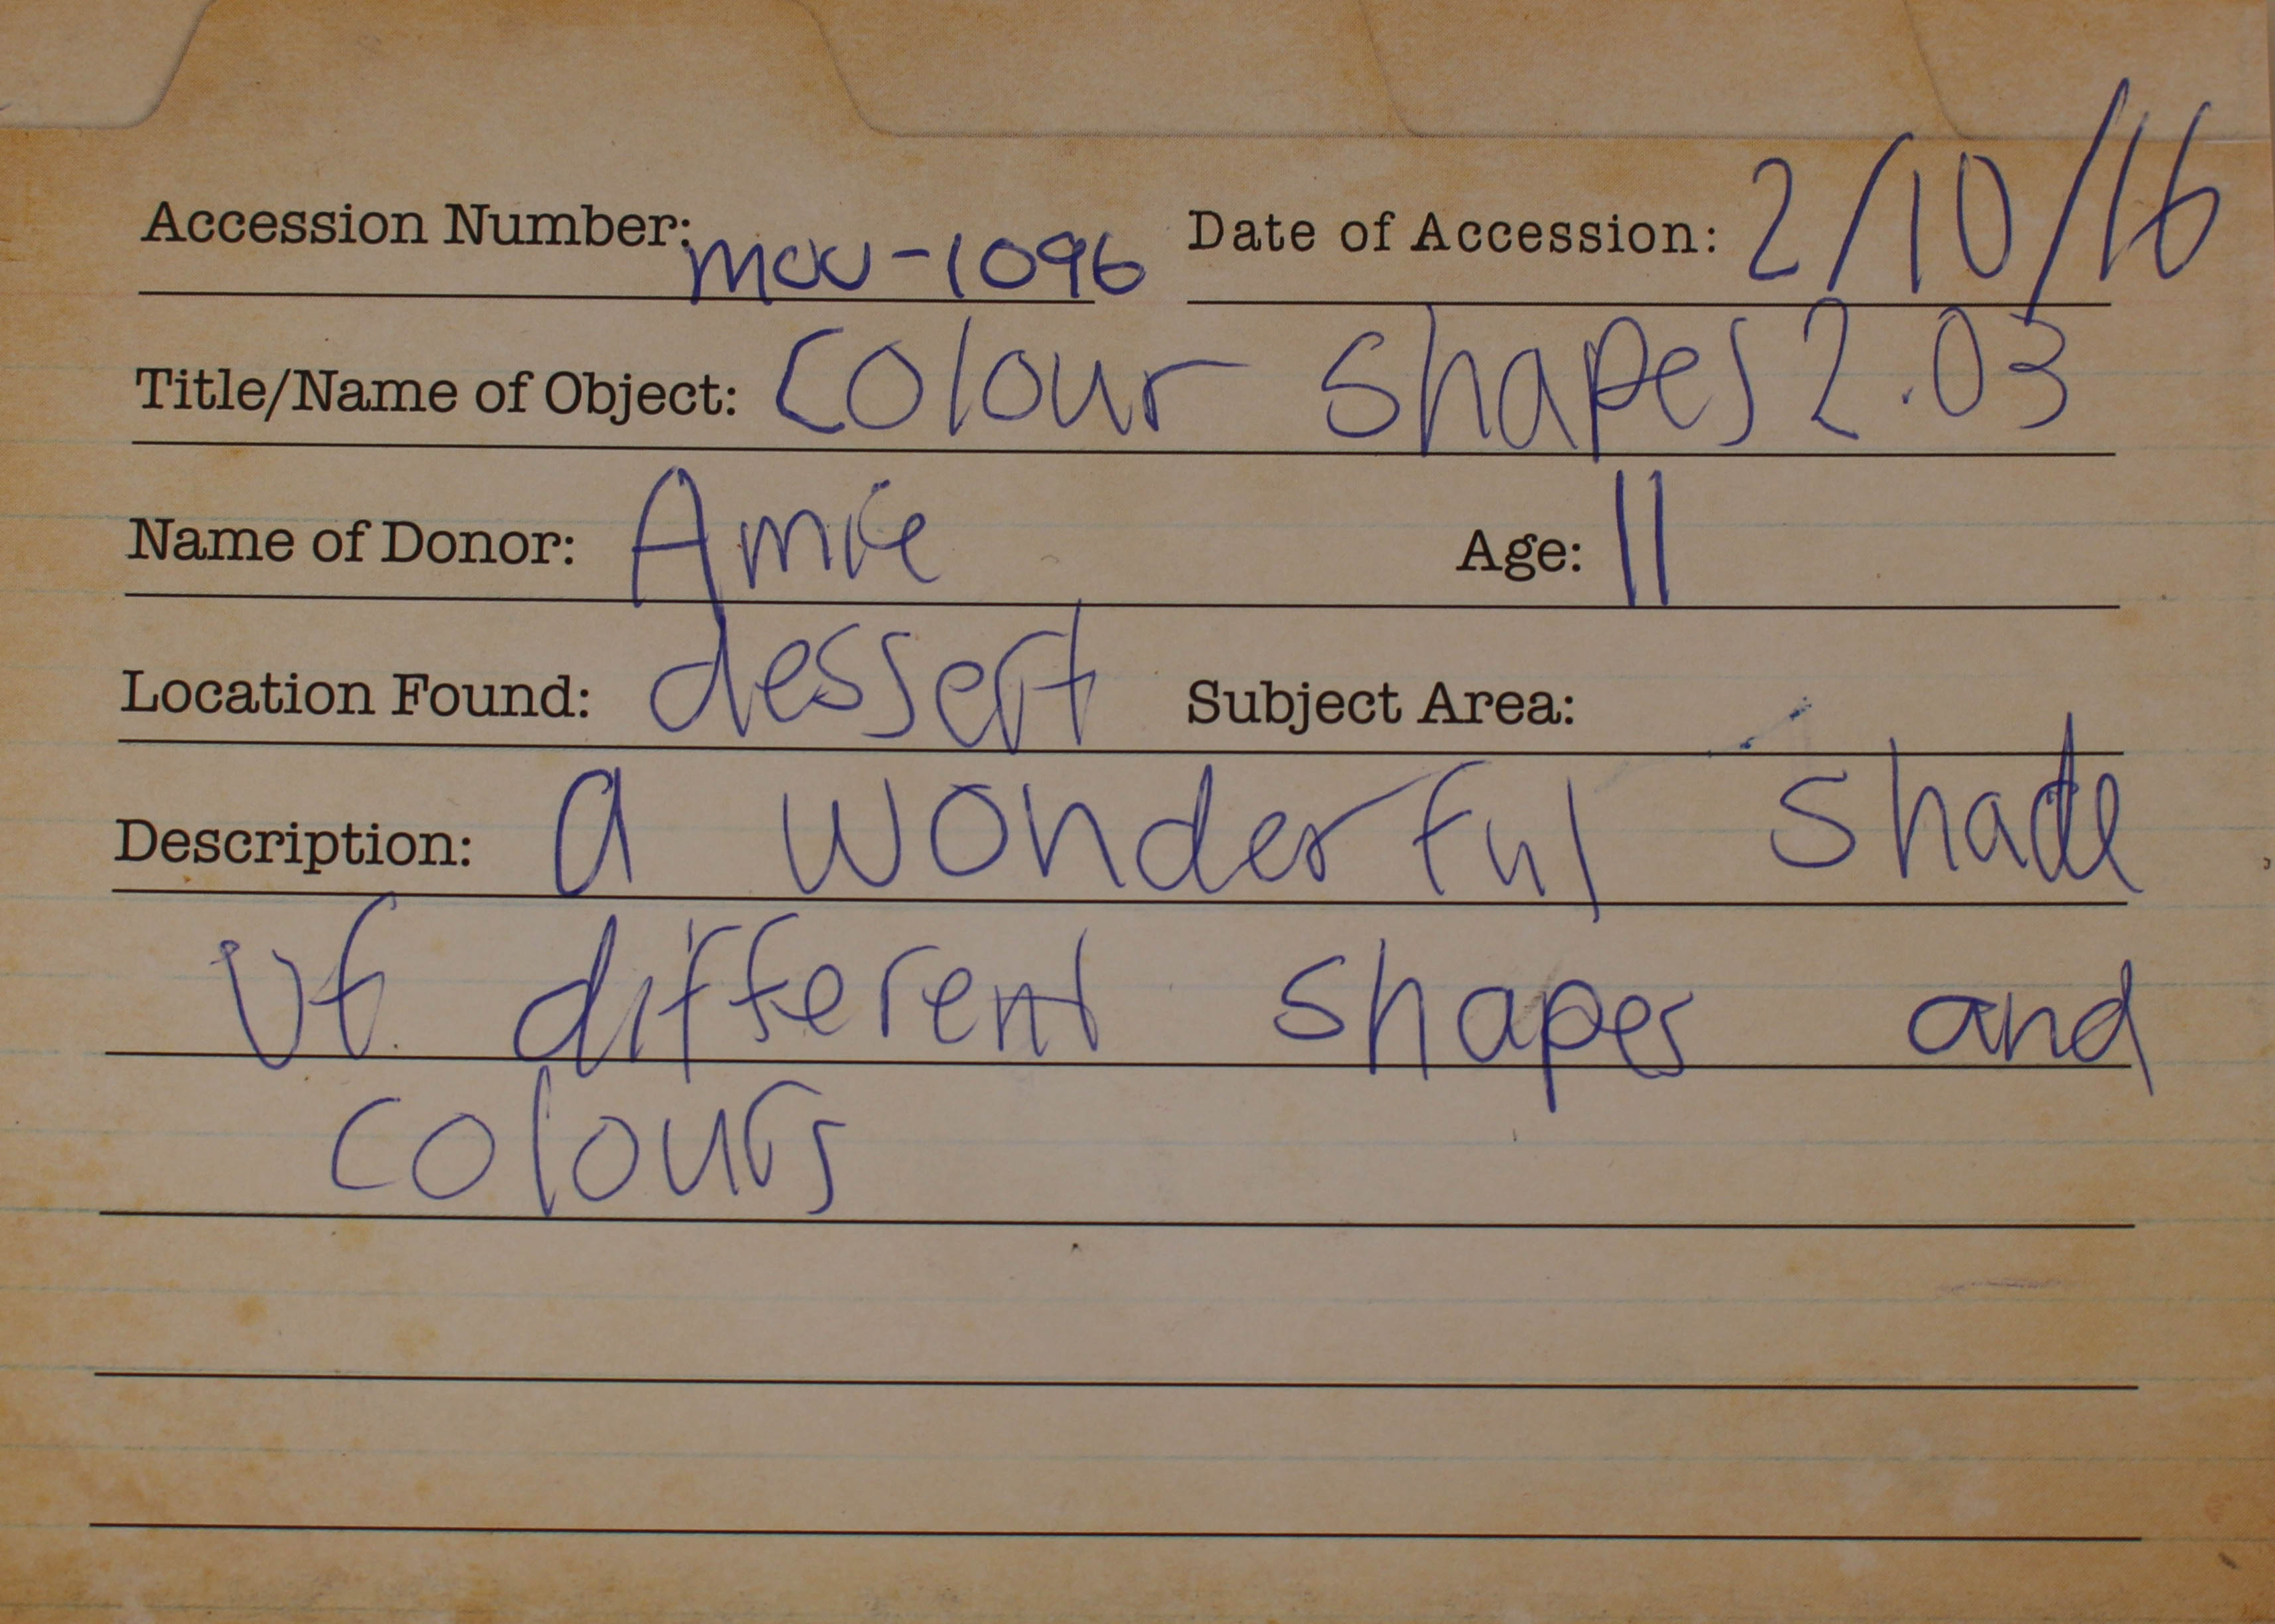 Accession Number: mcu-1096 Date of Accession: 2/10/16
Title/Name of Object: colour shapes 2.03
Name of Donor: Amie Age: 11
Location Found: dessert Subject Area:
Description: a wonderful shade
of different shapes and
colours